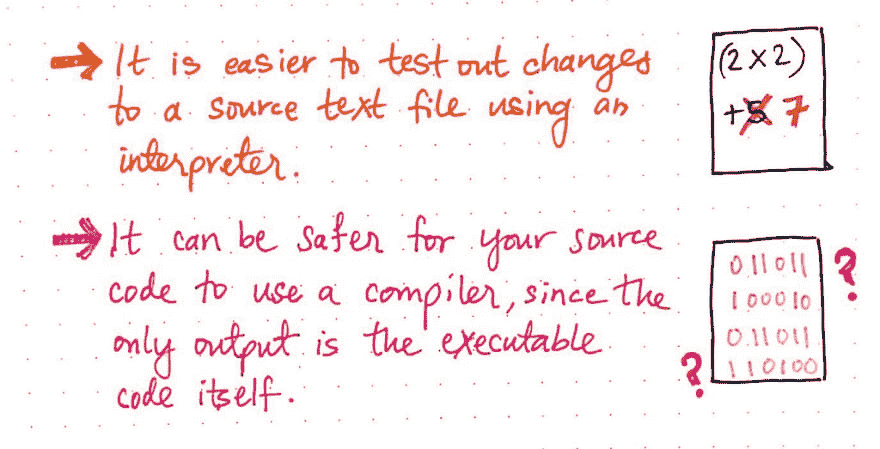 → It is easier to test out changes
to a source text file using an
interpreter.
(2×2)
+5 7
→ It can be safer for your source
code to use a compiler, since the
only output is the executable
code itself.
011011 ?
100010
011011
? 110100